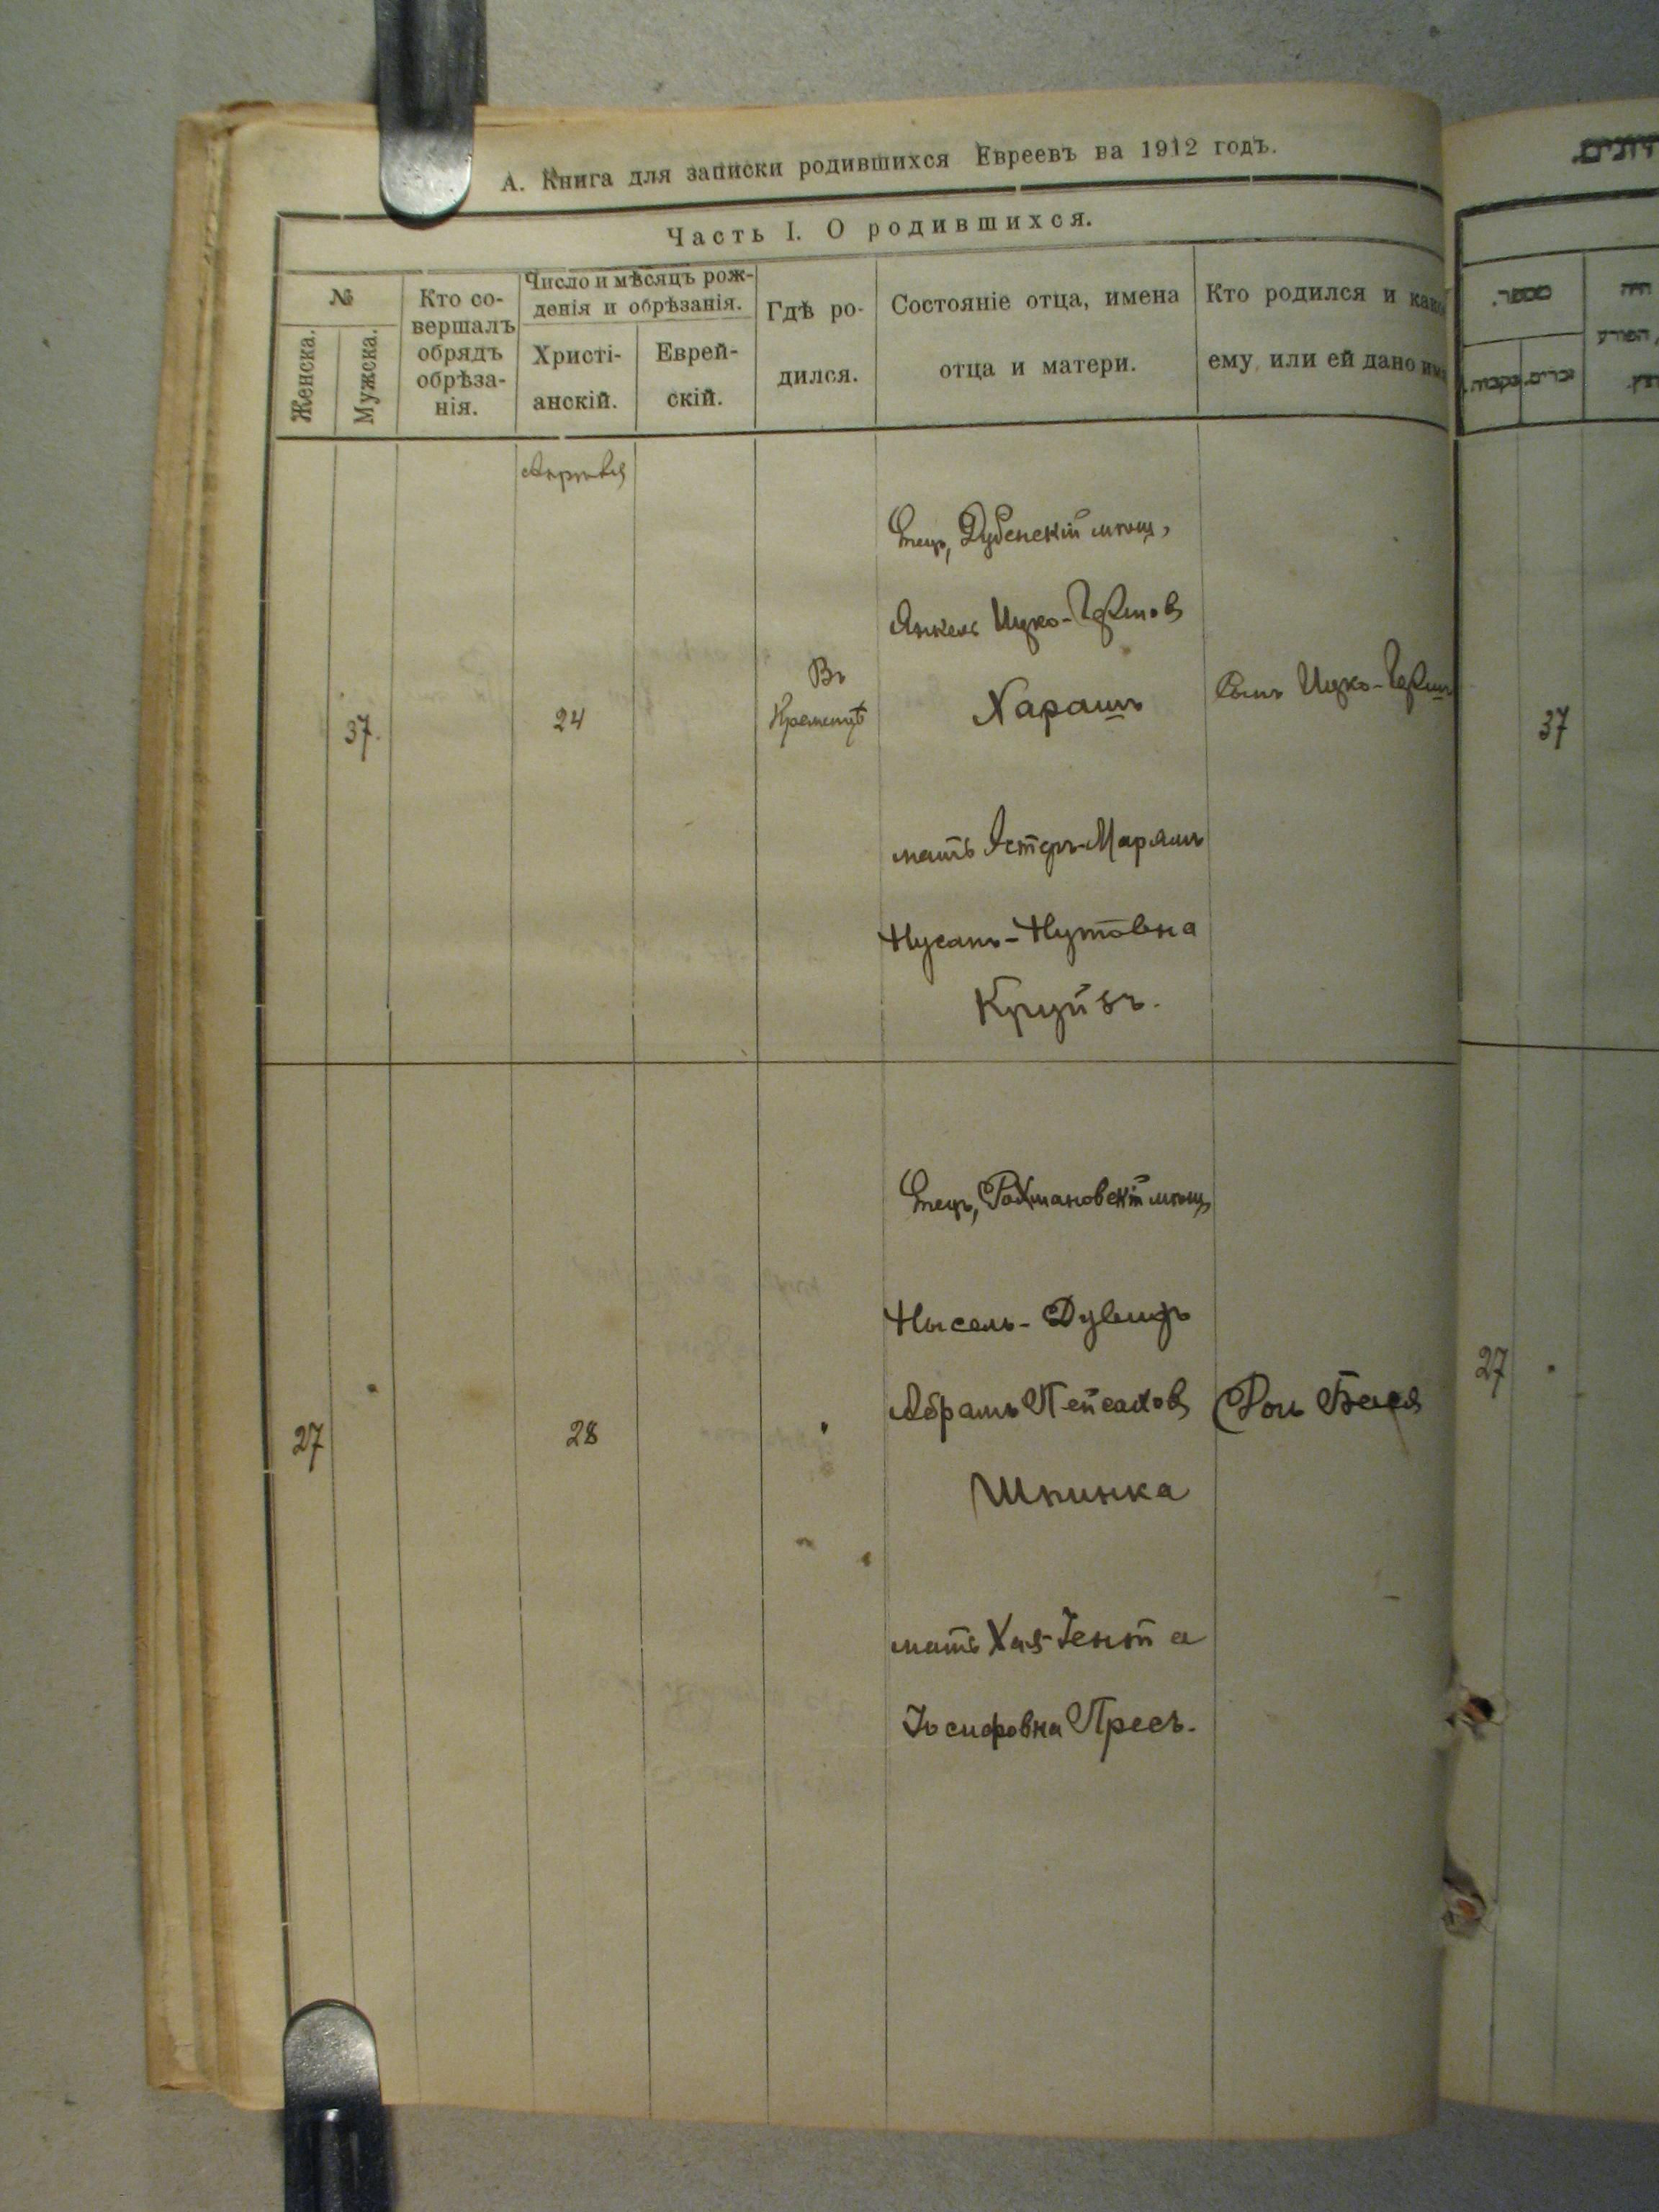 А. Книга для записки родившихся Евреевъ на 1912 годъ.
Часть I. О родившихся.
№
Женска.
Мужска.
Кто со-
вершалъ
обрядъ
обрѣза-
нія.
Число и мѣсяцъ рож-
денія и обрѣзанія.
Христі-
анскій.
Еврей-
скій.
Гдѣ ро-
дился.
Состояніе отца, имена
отца и матери.
Кто родился и како
ему или ей дано имя
Апрѣля
37.
24
Въ
Кременцѣ
Отецъ, Дубенскій мѣщ,
Янкель Ицко-Гершов
Харашъ
мать Эстеръ-Марямъ
Нусанъ-Нутовна
Круйзъ.
Сынъ Ицко-Гершъ
27
28
Отецъ, Рахмановскій мѣщ
Нысель-
Абрамъ Пейсахов
Шпинка
мать Хая-Гента
Іосифовна Пресъ.
מספר.
זכרים.
נקבות.
37
27